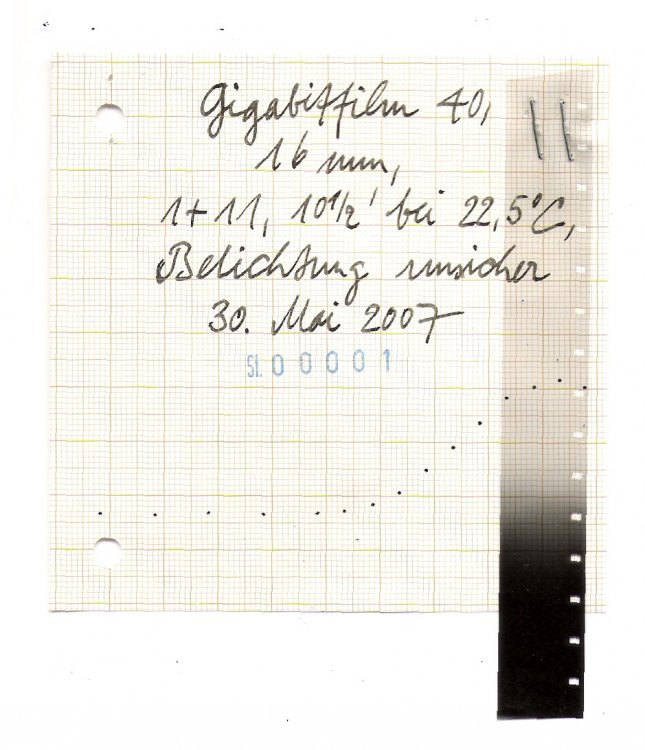 Gigabitfilm 40,
16 mm,
1+11, 10½' bei 22,5°C,
Belichtung unsicher
30. Mai 2007
St. 00001